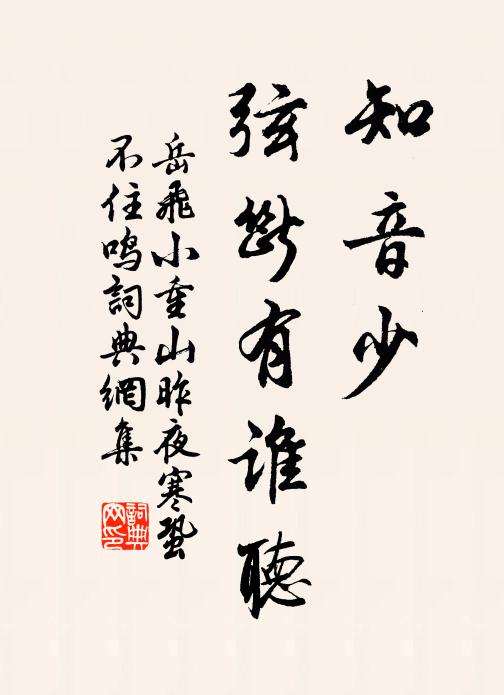 知音少
弦斷有誰聽
岳飛小重山昨夜寒蛩
不住鳴詞典網集
詞典
网印